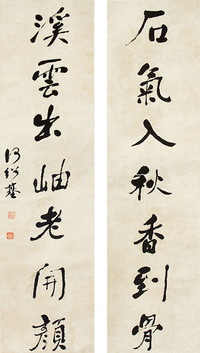 石氣入秋香到骨
溪雲出岫老開顏
何紹基